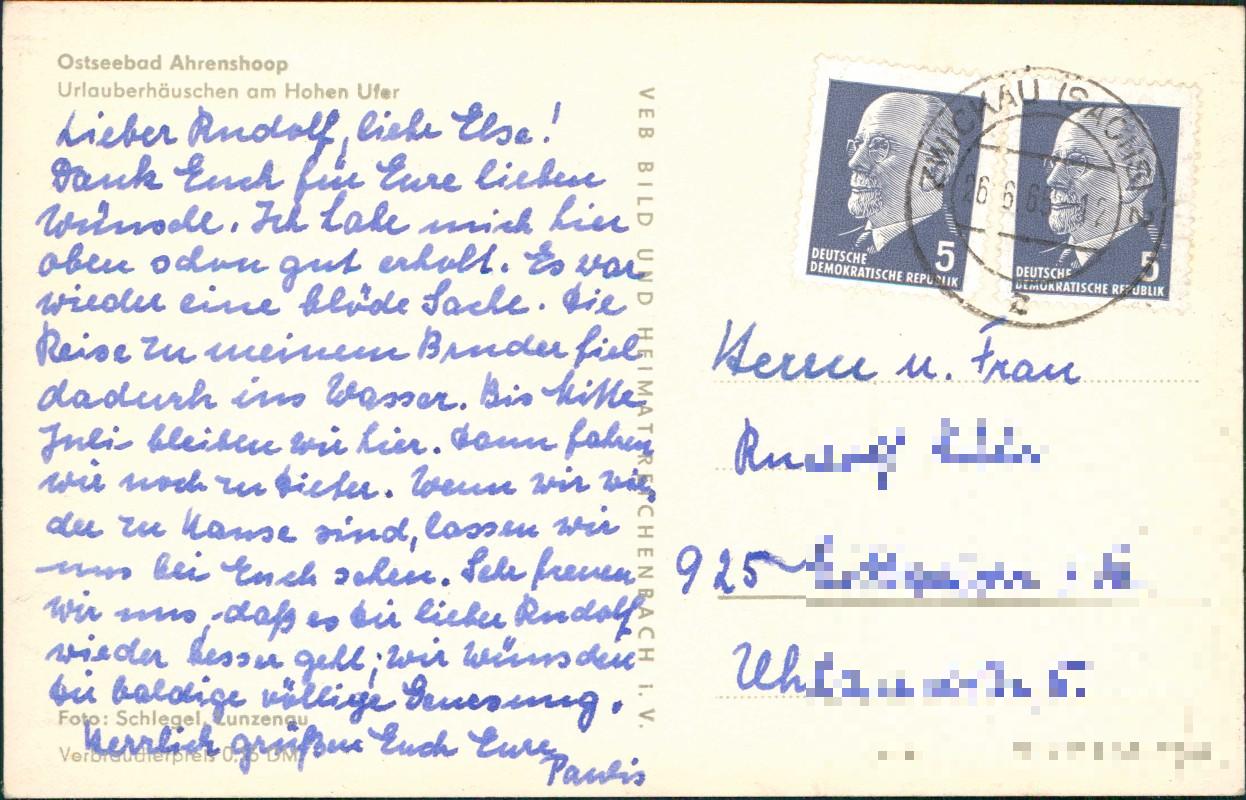 Ostseebad Ahrenshoop
Urlauberhäuschen am Hohen Ufer
Lieber Rudolf, liebe Else!
Dank Euch für Eure lieben
Wünsche. Ich habe mich hier
oben schon gut erholt. Es war
wieder eine blöde Sache. Die
Reise zu meinem Bruder fiel
dadurch ins Wasser. Bis Mitte
Juli bleiben wir hier. Dann fahren
wir noch zu Dieter. Wenn wir wie-
der zu Hause sind, lassen wir
uns bei Euch sehen. Sehr freuen
wir uns, daß es Dir lieber Rudolf
wieder besser geht; wir wünschen
Dir baldige völlige Genesung.
Herzlich grüßen Euch Eure
Paulis
Foto: Schlegel, Lunzenau
Verbraucherpreis 0,15 DM
VEB BILD UND HEIMAT REICHENBACH I. V.
ZWICKAU (SACHS) 2
26.6.6 12
c
DEUTSCHE
DEMOKRATISCHE REPUBLIK
5
DEUTSCHE
DEMOKRATISCHE REPUBLIK
5
Herrn u. Frau
Rudolf
925
5.